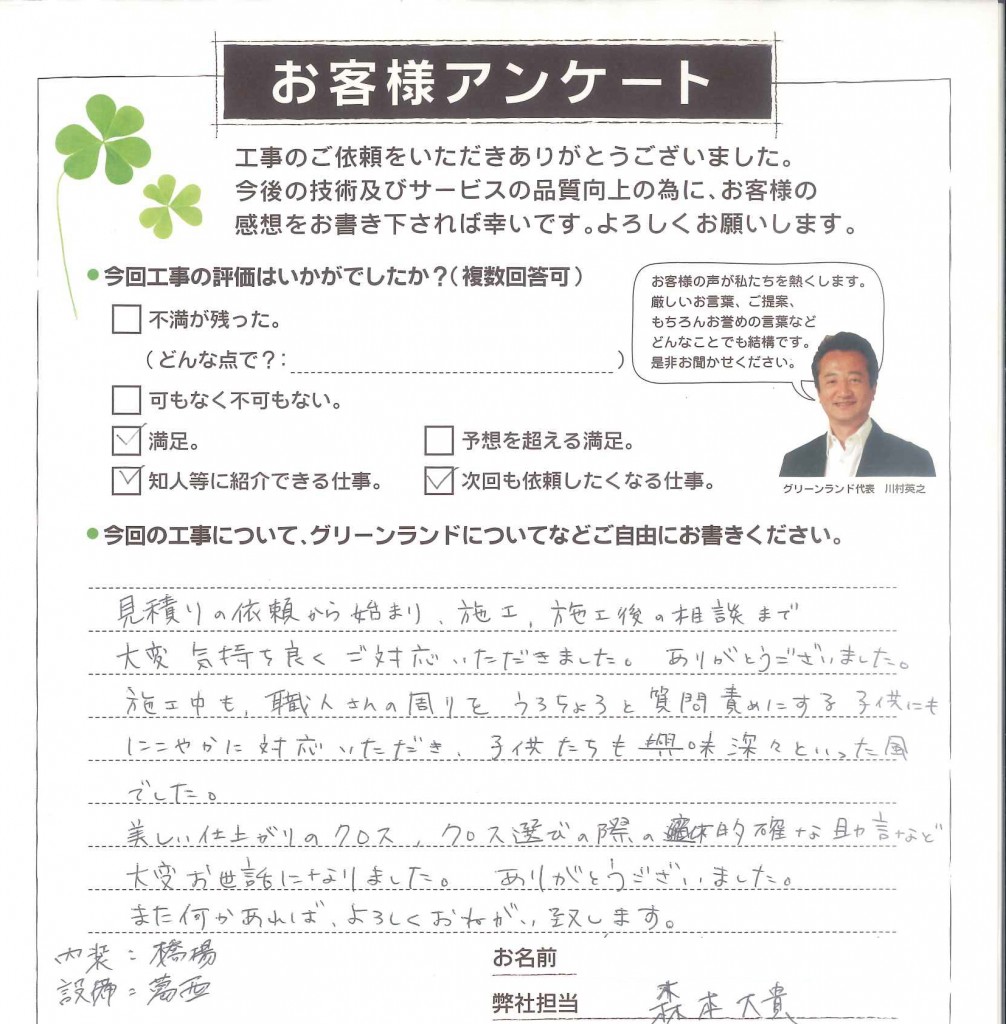 お客様アンケート
工事のご依頼をいただきありがとうございました。
今後の技術及びサービスの品質向上の為に、お客様の
感想をお書き下されば幸いです。よろしくお願いします。
●今回工事の評価はいかがでしたか？（複数回答可）
不満が残った。
（どんな点で？：　）
可もなく不可もない。
満足。
予想を超える満足。
知人等に紹介できる仕事。
次回も依頼したくなる仕事。
お客様の声が私たちを熱くします。
厳しいお言葉、ご提案、
もちろんお誉めの言葉など
どんなことでも結構です。
是非お聞かせください。
グリーンランド代表　川村英之
●今回の工事について、グリーンランドについてなどご自由にお書きください。
見積りの依頼から始まり、施工、施工後の相談まで
大変気持ち良くご対応いただきました。ありがとうございました。
施工中も、職人さんの周りをうろちょろと質問責めにする子供にも
にこやかに対応いただき、子供たちも興味深々といった風
でした。
美しい仕上がりのクロス、クロス選びの際の的確な助言など
大変お世話になりました。ありがとうございました。
また何かあれば、よろしくおねがい致します。
内装：橋場
設備：葛西
お名前
弊社担当
森本大貴